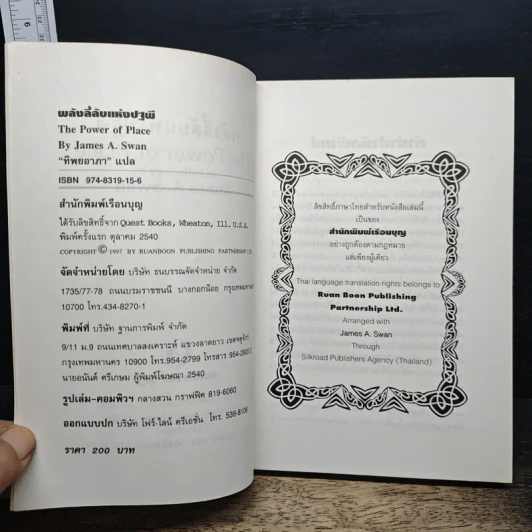 พลังลี้ลับแห่งปฐพี
The Power of Place
By James A. Swan
"ทิพยอาภา" แปล
ISBN 974-8319-15-6
สำนักพิมพ์เรือนบุญ
ได้รับลิขสิทธิ์จาก Quest Books, Wheaton, Ill. U.S.A.
พิมพ์ครั้งแรก ตุลาคม 2540
COPYRIGHT © 1997 BY RUANBOON PUBLISHING PARTNERSHIP LTD.
จัดจำหน่ายโดย บริษัท ธนบรรณจัดจำหน่าย จำกัด
1735/77-78 ถนนบรมราชชนนี บางกอกน้อย กรุงเทพมหานคร
10700 โทร.434-8270-1
พิมพ์ที่ บริษัท ฐานการพิมพ์ จำกัด
9/11 ม.9 ถนนเทศบาลสงเคราะห์ แขวงลาดยาว เขตจตุจักร
กรุงเทพมหานคร 10900 โทร.954-2799 โทรสาร 954-2800-2
นายอนันต์ ศรีเกษม ผู้พิมพ์โฆษณา 2540
รูปเล่ม-คอมพิวฯ กลางสวน กราฟฟิค 819-6060
ออกแบบปก บริษัท โฟร์-ไลน์ ครีเอชั่น โทร. 539-8106
ราคา 200 บาท
ลิขสิทธิ์ภาษาไทยสำหรับหนังสือเล่มนี้
เป็นของ
สำนักพิมพ์เรือนบุญ
อย่างถูกต้องตามกฎหมาย
แต่เพียงผู้เดียว
Thai language translation rights belongs to
Ruan Boon Publishing
Partnership Ltd.
Arranged with
James A. Swan
Through
Silkroad Publishers Agency (Thailand)
6